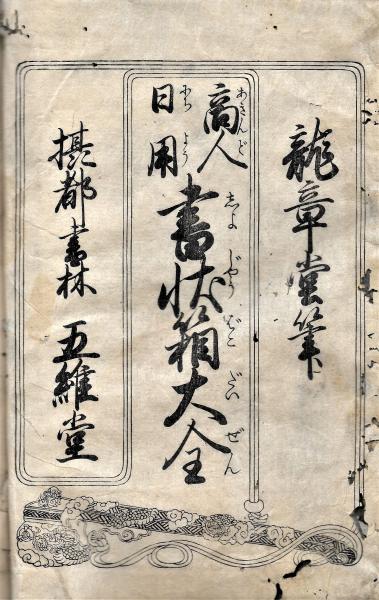 龍章堂筆
商人
あきんど
日用
にちよう
書状箱大全
しよじやうばこだいぜん
摂都書林 五維堂